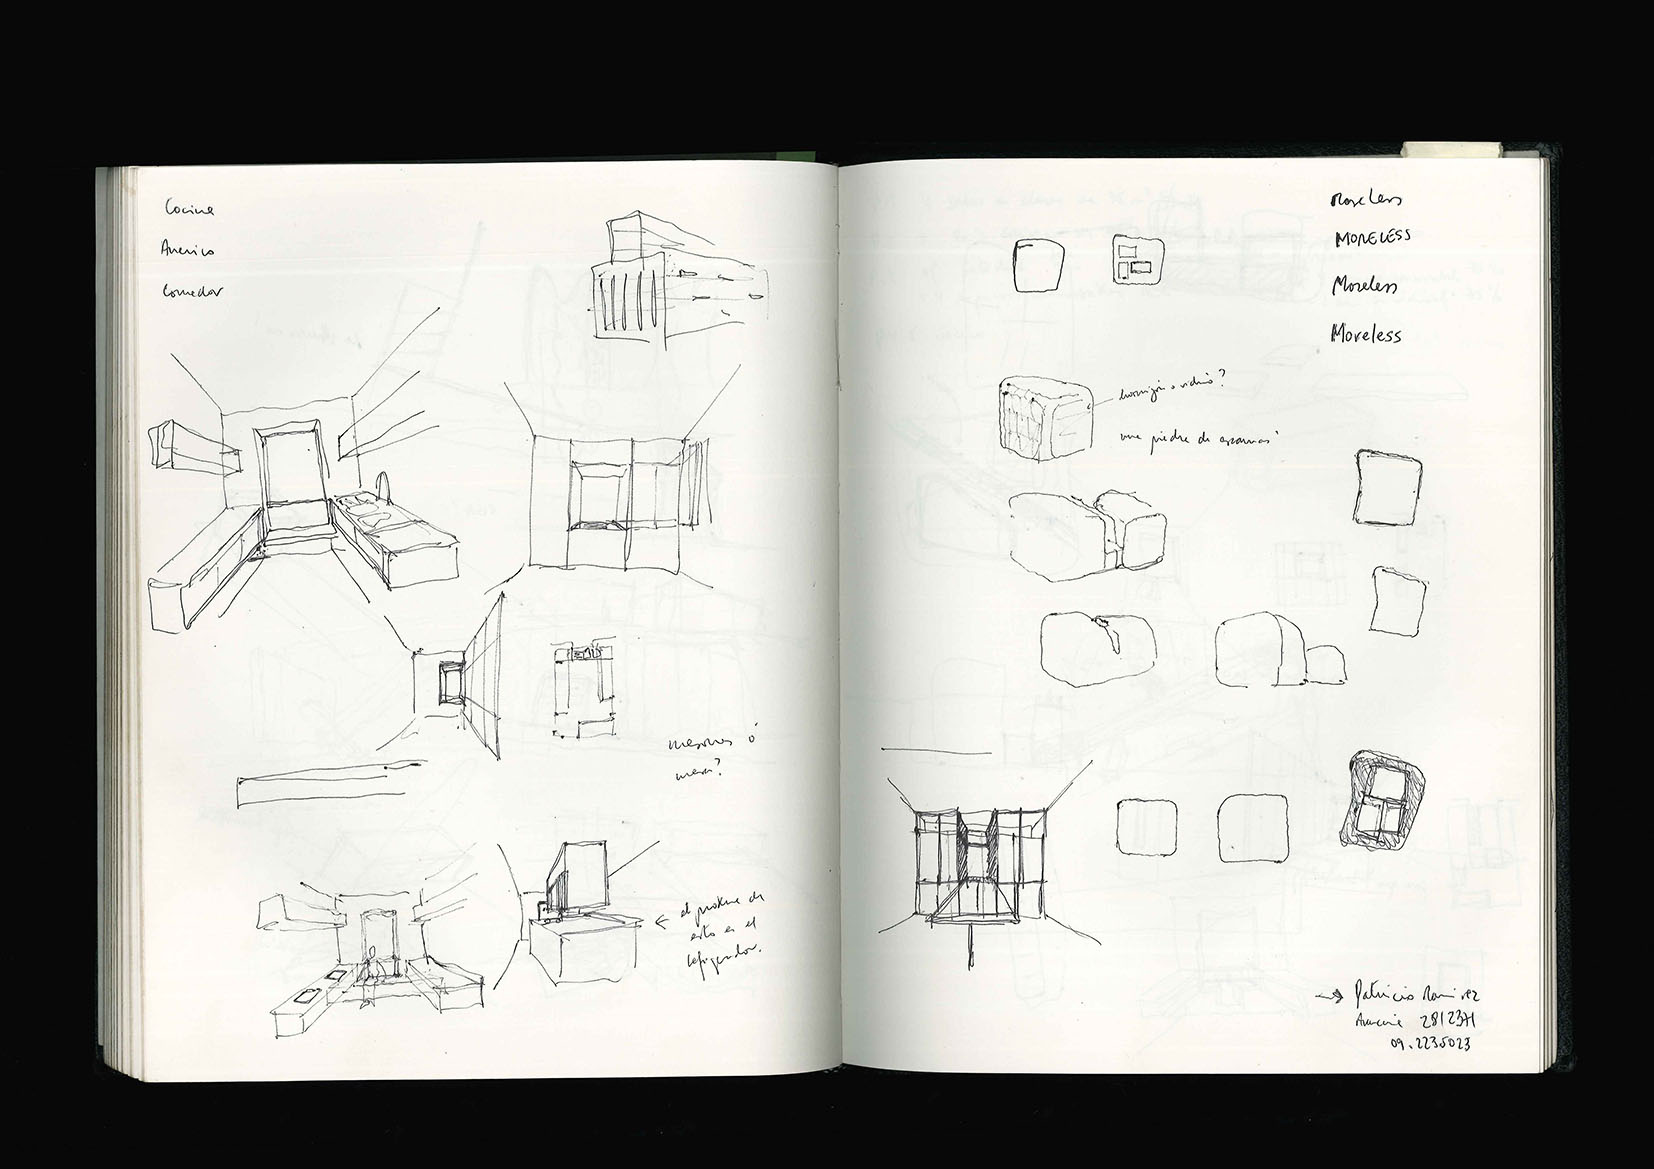 Cocina
Americo
Comedor
mesones ó
mesa?
el problema de
esto es el
refrigerador.
Moreless
MORELESS
Moreless
Moreless
hormigón o vidrio?
una piedra de
→ Patricio Ramirez
09.2235023